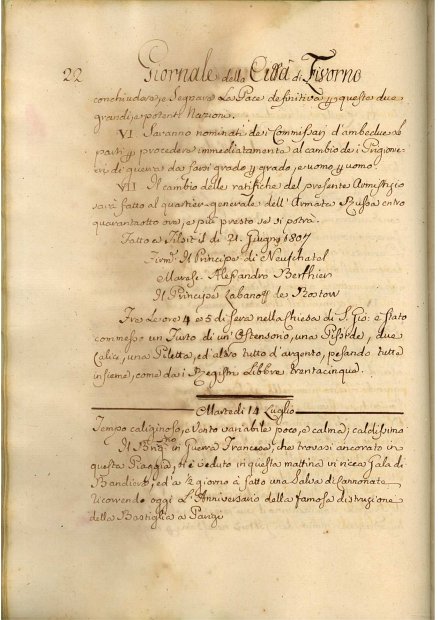 22 Giornale della Città di Livorno
conchiudare, e Segnare La Pace definitiva p questa due
grandi, e potenti Nazione.
VI. Saranno nominati dei Commissarj d'ambedue le
parti p procedere immediatamente al cambio dei Prigionie-
ri di guerra da farsi grado p grado, e uomo p uomo.
VII. Il cambio delle ratifiche del presente Armistizio
sarà fatto al quartier-generale dell'Armata Russa entro
quarantotto ore, e più presto se si potrà.
Fatto a Tilsit lì di 21. Giugno 1807
Firm. Il Principe di Neufchatel
Maresc. Alessandro Berthier
Il Principe Labanoff de Rostow
Fra Le ore 4 e 5 di sera nella Chiesa di S. Gio: è stato
commesso un Furto di un'Ostensorio, una Pisside, due
Calici, una Piletta, ed altro tutto d'argento, pesando tutto
insieme, come dai Registri Libbre trentacinque.
Martedì 14 Luglio
Tempo caliginoso, e Vento variabile poco, e calma; caldissimo
Il Brig.no in Guerra Francese, che trovasi ancorato in
questa Piaggia, si è veduto in questa mattina in ricca Gala di
Bandiere, ed a ½ giorno à fatto una Salva di Cannonate
ricorrendo oggi L'Anniversario della famosa distruzione
della Bastiglia a Parigi